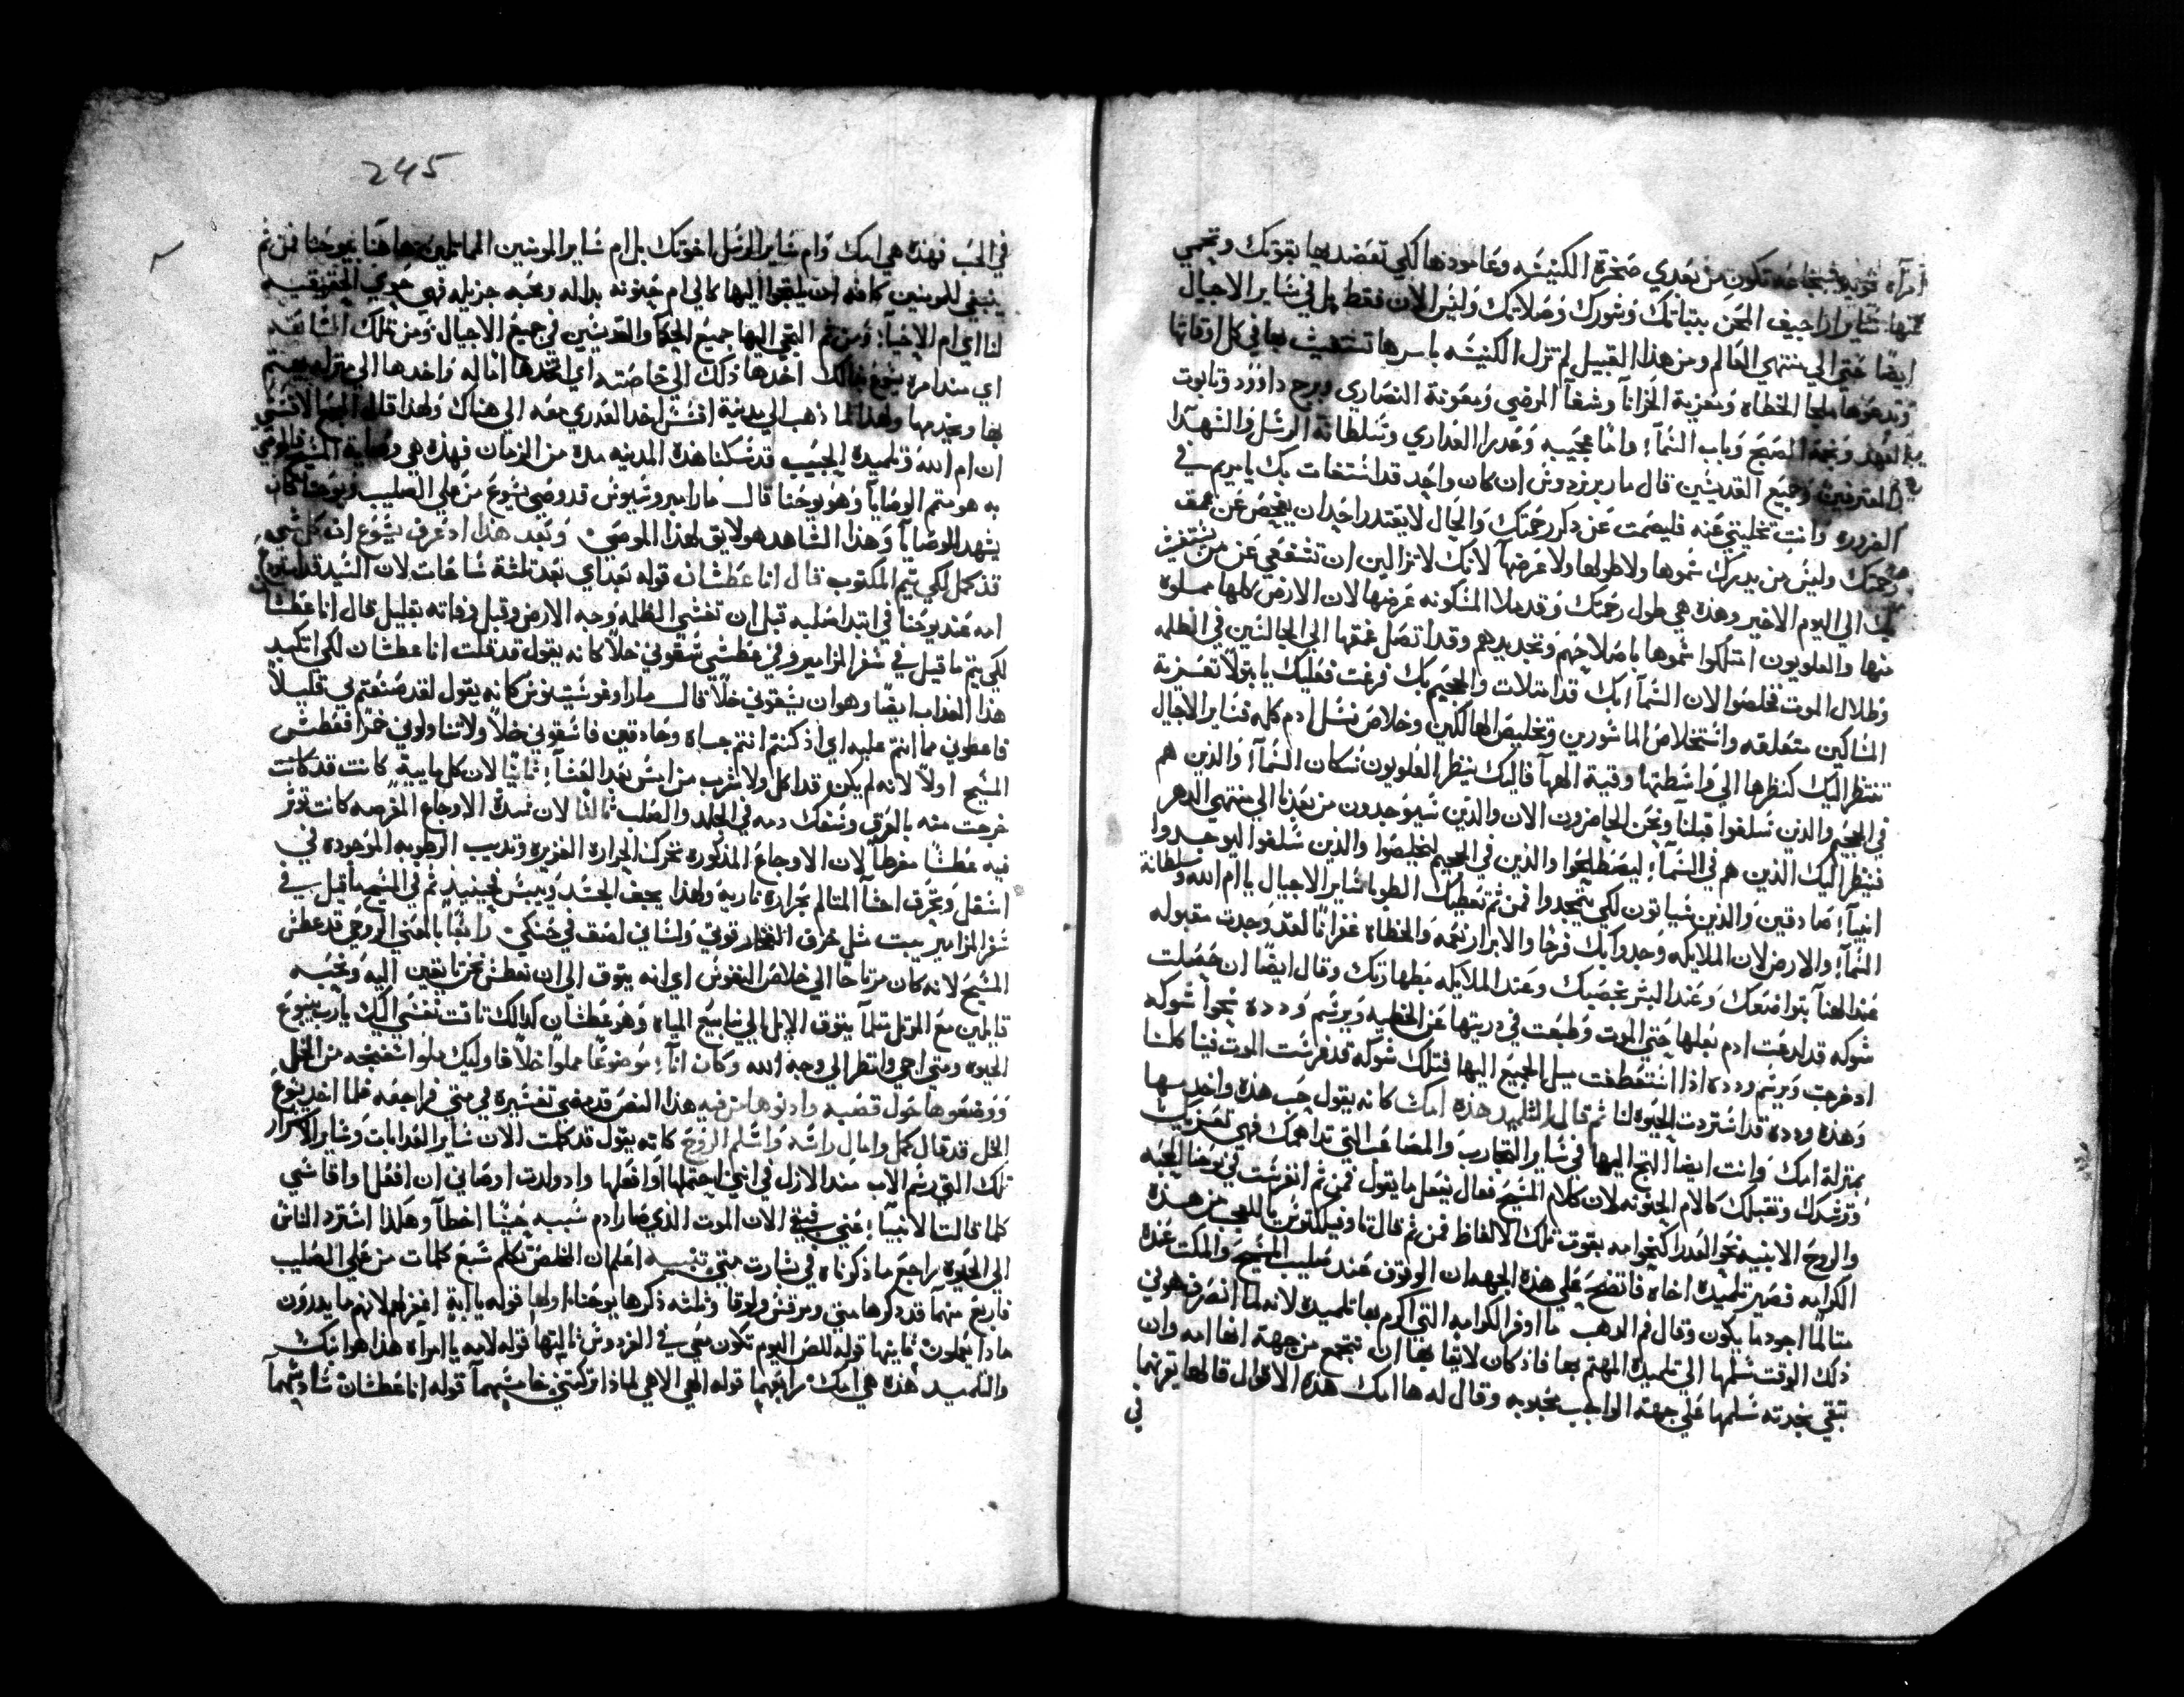 امرآه قويه وشجاعه تكون من بعدي صخرة الكنيسه وعامودها لكي تعضديها بقوتك وتحمي
عنها ساير اراجيف المحن بثباتك وشورك وصلاتك وليس الان فقط بل في ساير الاجيال
ايضا حتي الي منتهي العالم ومن هذا القبيل لم تزل الكنيسه باسرها تستغيث بها في كل اوقاتها
وتدعوها ملجا الخطاه ومعزية الحزانا وشفآ المرضي ومعونة النصاري وبرج داوود وتابوت
العهد ونجمة الصبح وباب السمآ؛ واما عجيبه وعدرا العداري وسلطانة الرسل والشهدا
والمعترفين وجميع القديسين قال ماربرنردوس ان كان واحد قد استغاث بك يا مريم في
الضروره وانت تخليتي عنه فليصمت عن دكر رحمتك والحال لا يقتدر احد ان يفحص عن عمق
رحمتك وليس من يدرك سموها ولا طولها ولا عرضها لانك لا تزالين ان تشفعي عن من يستغيث
بك الي اليوم الاخير وهذه هي طول رحمتك وقد ملا المسكونه عرضها لان الارض كلها مملوه
منها والعلويون امتلكوا سموها باصلاحهم وتجديدهم وقد اتصل عمقها الي الجالسين في الظلمه
وظلال الموت فخلصوا الان السمآ بك قد امتلات والجحيم بك فرغت فعليك يا بتولا تعزية
المساكين متعلقه واستخلاص الماسورين وتخليص الهالكين وخلاص نسل ادم كله فساير الاجيال
تنتظر اليك كنظرها الي واسطتها وقبة الهها فاليك ينظر العلويون سكان السمآ؛ والذين هم
في الجحيم والذين سلفوا قبلنا ونحن الحاضرون الان والذين سيوجدون من بعدنا الي منتهي الدهر
فينظر اليك الذين هم في السمآ؛ ليصطلحوا والذين في الجحيم ليتخلصوا والذين سلفوا ليوجدوا
انبيآ؛ صادقين والذين سياتون لكي يتمجدوا فمن ثم تعطيك الطوبا ساير الاجيال يا ام الله وسلطانة
السمآ؛ والارض لان الملايكه وجدوا بك فرحا والابرار نعمه والخطاه غفرانا لقد وجدت مقبوله
عند الهنا بتواضعك وعند البشر بخصبك وعند الملايكه بطهارتك وقال ايضا ان حصلت
شوكه قد لدغت ادم بعلها حتي الموت وطبعت في دريتها عن الخطيه ويرسم ورده نحوا شوكه
اد خرجت ويرسم ورده اذا استعطفت ميل الجميع اليها فتلك شوكه قد غرست الموت فينا كلنا
وهذه ورده قد استردت الحيوه لنا ثم قال للتلميد هذه امك كانه يقول حب هذه واخدمها
بمنزلة امك وانت ايضا التجي اليها في ساير التجارب والمصاعب التي تداهمك فهي تعزيك
وترشدك وتقبلك كالام الحنونه لان كلام المسيح فعال يفعل ما يقول فمن ثم انغرست في يوحنا المحبه
والروح الابنيه نحو العدرا كنحو امه بقوت تلك الالفاظ فمن ثم قال تاوفيلكتوس يا للعجب من هذه
الكرامه فصير تلميذه اخاه فاتضح علي هذه الجهه ان الوقوف عند صليب المسيح والمكث عنده
متالما اجود ما يكون وقال فم الدهب ما اوفر الكرامه التي اكرم بها تلميده لانه لما انصرف هو في
ذلك الوقت سلمها الي تلميده المهتم بها فاذ كان لايقا بها ان تتجمع من جهة انها امه وان
تبقي بخدمته سلمها علي جهة الواجب محبوبه وقال له ها امك هذه الاقوال قالها يقرنهما
في
245
في الحب فهذه هي امك وام ساير الرسل اخوتك بل ام ساير المومنين الماثلين ها هنا بيوحنا فمن ثم
ينبغي للمومنين كافة ان يلتجوا اليها كالي ام حنونه بداله ومحبه جزيله فهي حوي الحقيقيه
لنا اي ام الاحيآ؛ ومن ثم التجي اليها جميع الحكمآ والقديسين في جميع الاجيال ومن تلك الساعه
اي منذ امره يسوع بذلك اخدها ذلك الي خاصته اي اتخدها اما له واخدها الي منزله ليهتم
بها ويخدمها ولهذا لما ذهب الي مدينة افسس اخد العدري معه الي هناك ولهذا قال المجمع الافسسي
ان ام الله وتلميده الحبيب قد سكنا هذه المدينه مدة من الزمان فهذه هي وصاية المسيح الموصي
به هو متم الوصايآ وهو يوحنا قال مار امبروسيوس قد وصي يسوع من علي الصليب ويوحنا كان
يشهد للوصايآ وهذا الشاهد هو لايق لهذا الموصي وبعد هذا اد عرف يسوع ان كل شي
قد كمل لكي يتم المكتوب قال انا عطشان قوله بعد اي بعد ثلثة ساعات لان السيد قد استودع
امه عند يوحنا في ابتدا صلبه قبل ان تغشي الظلمه وجه الارض وقبل وفاته بقليل قال انا عطشان
لكي يتم ما قيل في سفر المزامير وفي عطشي سقوني خلا كانه يقول قد قلت انا عطشان لكي اتكبد
هذا العداب ايضا وهو ان يسقوني خلا قال مار اوغوسيتنوس كانه يقول لقد صنعتم بي قليلا
فاعطوني مما انتم عليه اي اذ كنتم انتم جساه وحادقين فاسقوني خلا ولا تناولوني خمرا فعطش
المسيح اولا لانه لم يكن قد اكل ولا شرب من امس بعد العشآ؛ ثانيا لان كل مايية كانت قد كانت
خرجت منه بالعرق وسفك دمه في الجلد والصلب ثالثا لان شدة الاوجاع المفرصه كانت توثر
فيه عطشا مفرطا لان الاوجاع المذكوره تحرك الحراره الغزيره وتديب الرطوبه الموجوده في
اسفل وتحرق احشآ المتالم بحراره ناريه ولهذا يجف الجسد وييبس فحينيد ثم في المسيح ما قيل في
سفر المزامير يبست مثل خزف الفخار قوتي ولساني لصف في حنكي رابعا بالمعني الروحي قد عطش
المسيح لانه كان مرتاحا الي خلاص النفوس اي انه يتوق الي ان نعطش نحن تايقين اليه ونحبه
قايلين مع المرتل مثلما يتوق الايل الي ينابيع المياه وهو عطشان كدالك تاقت نفسي اليك يا رب ينبوع
الحيوه ومتي اجي وانظر الي وجه الله وكان انآ؛ موضوعا مملوا خلا فاوليك ملوا سفنجه من الخل
ووضعوها حول قصبه وادنوها من فيه هذا النص قد مضي تفسيره في متي فراجعه فلما اخد يسوع
الخل قد قال كمل وامال راسه واسلم الروح كانه يقول قد كملت الان ساير العدابات وساير الاسرار
تلك التي رسم الاب منذ الازل في انني احتملها وافعلها واد ولدت اوصاني ان افعل واقاسي
كلما قالت الانبيآ؛ عني الان الموت الذي صار ادم سببه حينما اخطآ وهكذا استرد الناس
الي الحيوه راجع ما ذكرناه في بشارت متي تنبيه اعلم ان المخلص تكلم سبع كلمات من علي الصليب
فاربع منهما قد دكرها متي ومرقس ولوقا وثلثه ذكرها يوحنا اولها قوله يا ابة اغفر لهم لانهم ما يدرون
ما دا يعملون ثانيها قوله للص اليوم تكون معي في الفردوس ثالثها قوله لامه يا امراه هذا هو ابنك
والتلميد هذه هي امك رابعهما قوله الهي الاهي لماذا تركتني خامسهما قوله انا عطشان سادسهما